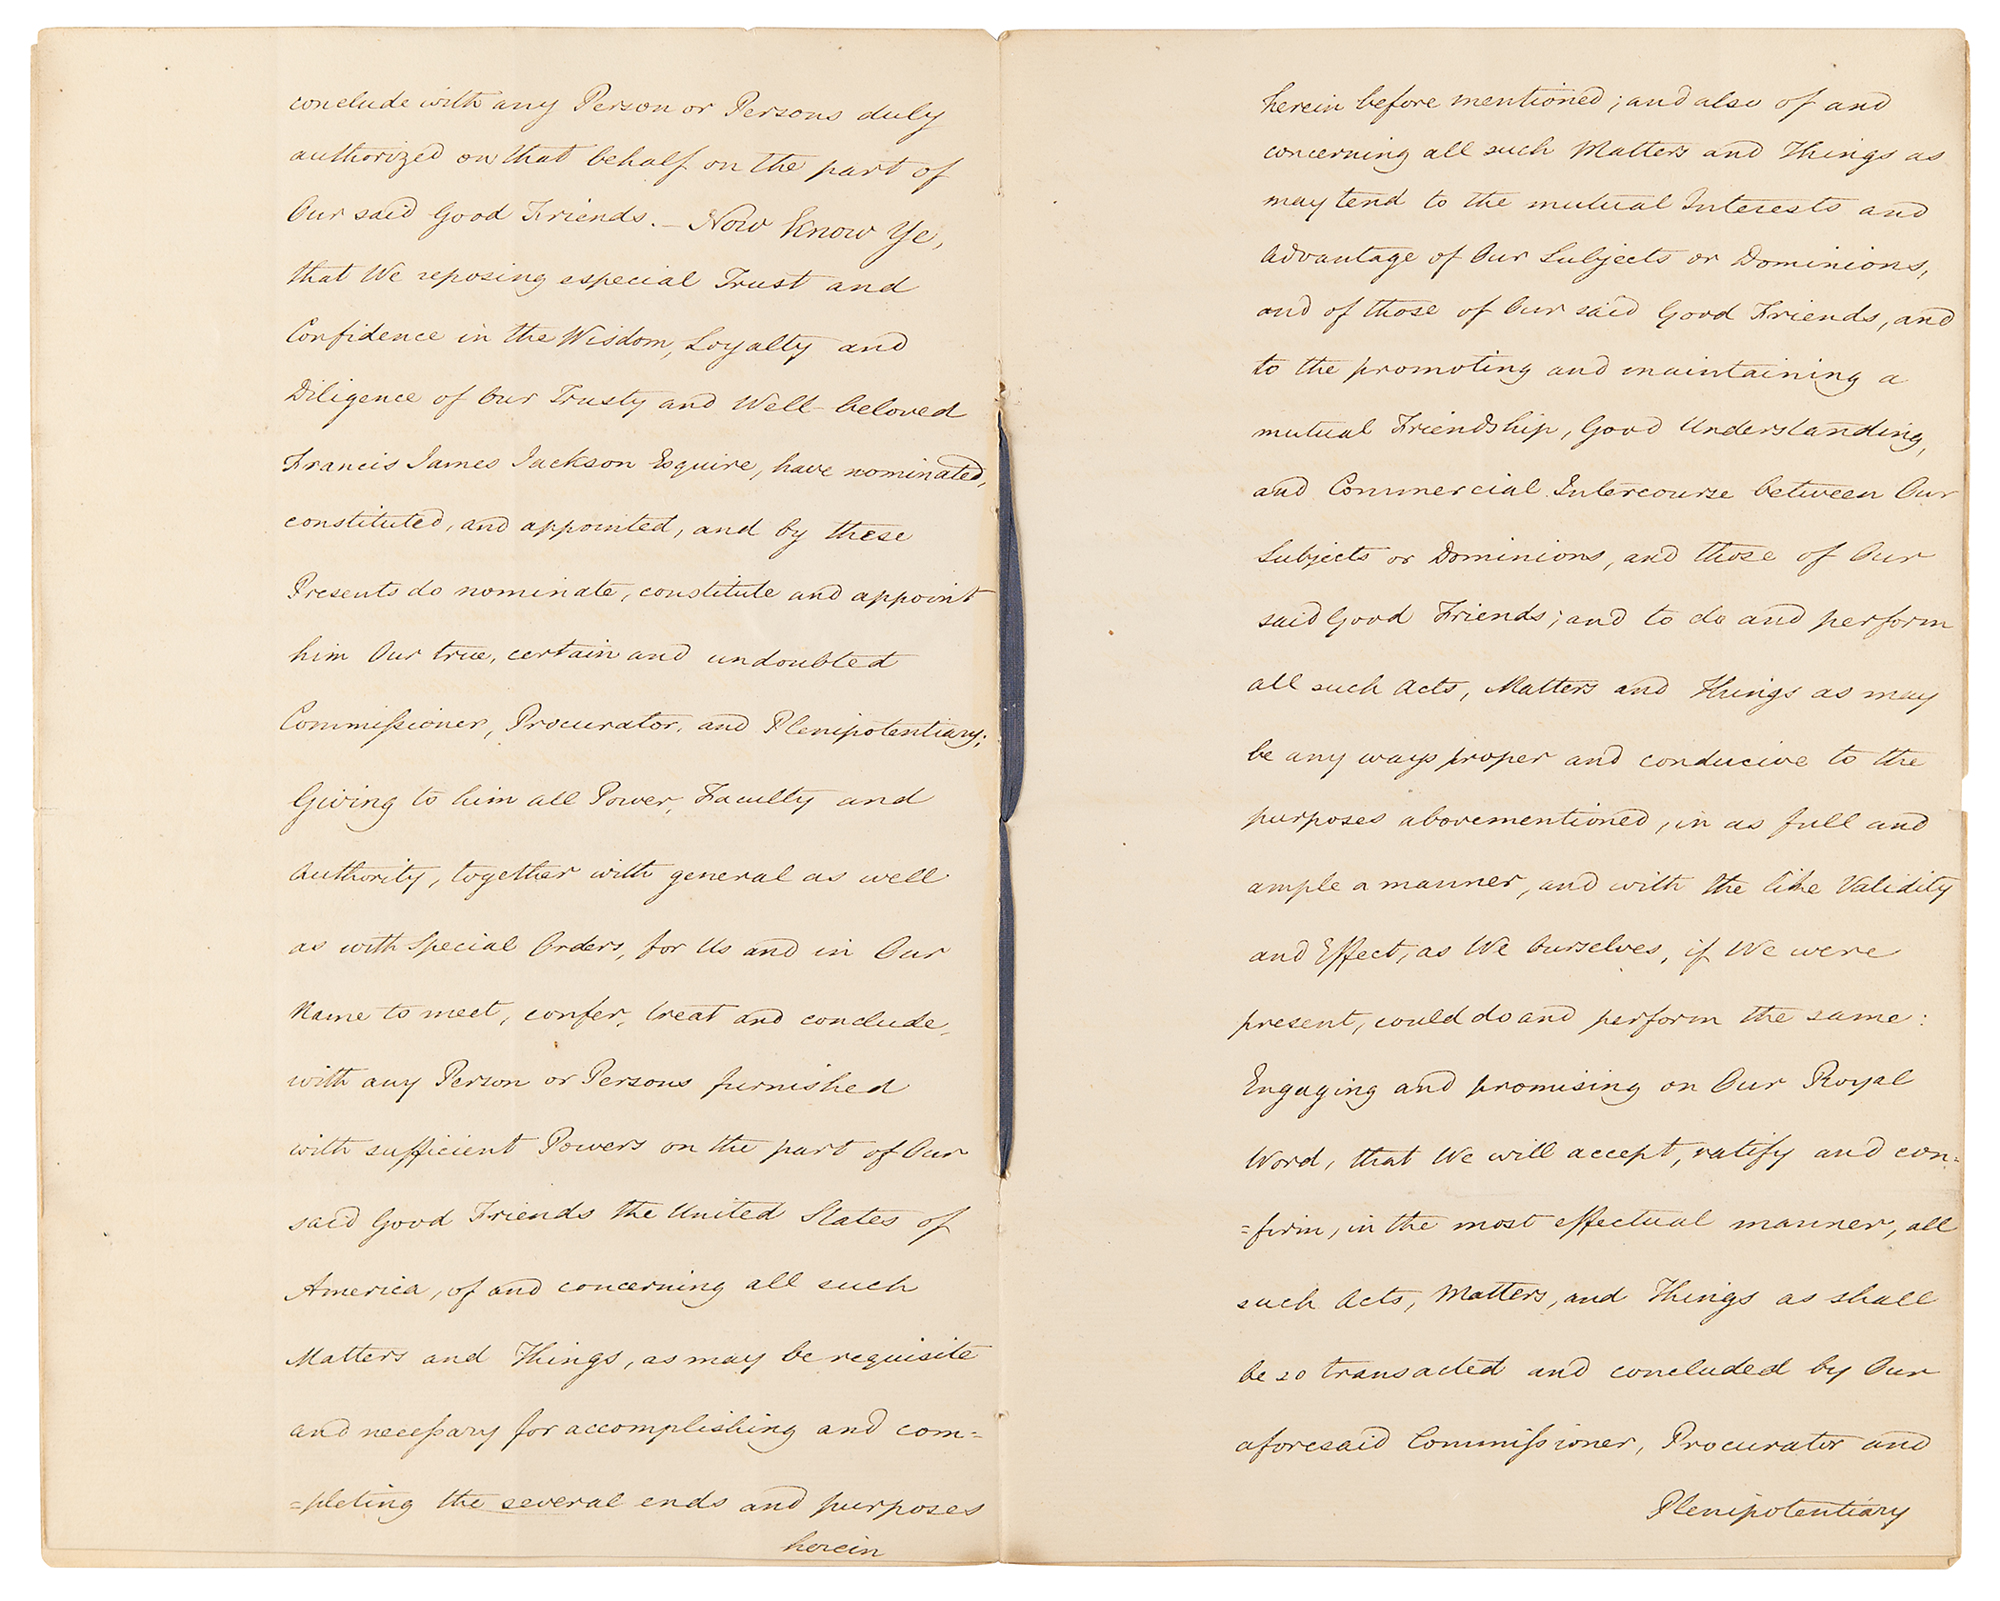 conclude with any Person or Persons duly
authorized on that behalf on the part of
Our said Good Friends. – Now know Ye,
that We reposing especial Trust and
Confidence in the Wisdom, Loyalty and
Diligence of Our Trusty and Well-beloved
Francis James Jackson Esquire, have nominated,
constituted, and appointed, and by these
Presents do nominate, constitute and appoint
him Our true, certain and undoubted
Commiſsioner, Procurator, and Plenipotentiary;
Giving to him all Power, Faculty and
Authority, together with general as well
as with Special Orders, for Us and in Our
Name to meet, confer, treat and conclude,
with any Person or Persons furnished
with sufficient Powers on the part of Our
said Good Friends the United States of
America, of and concerning all such
Matters and Things, as may be requisite
and neceſsary for accomplishing and com=
=pleting the several ends and purposes
herein
herein before mentioned; and also of and
concerning all such Matters and Things as
may tend to the mutual Interests and
Advantage of Our Subjects or Dominions,
and of those of Our said Good Friends, and
to the promoting and maintaining a
mutual Friendship, Good Understanding,
and Commercial Intercourse between Our
Subjects or Dominions, and those of Our
said Good Friends; and to do and perform
all such Acts, Matters and Things as may
be any ways proper and conducive to the
purposes abovementioned, in as full and
ample a manner, and with the like Validity
and Effect, as We Ourselves, if We were
present, could do and perform the same:
Engaging and promising on Our Royal
Word, that We will accept, ratify and con=
=firm, in the most effectual manner, all
such Acts, Matters, and Things as shall
be so transacted and concluded by Our
aforesaid Commiſsioner, Procurator and
Plenipotentiary